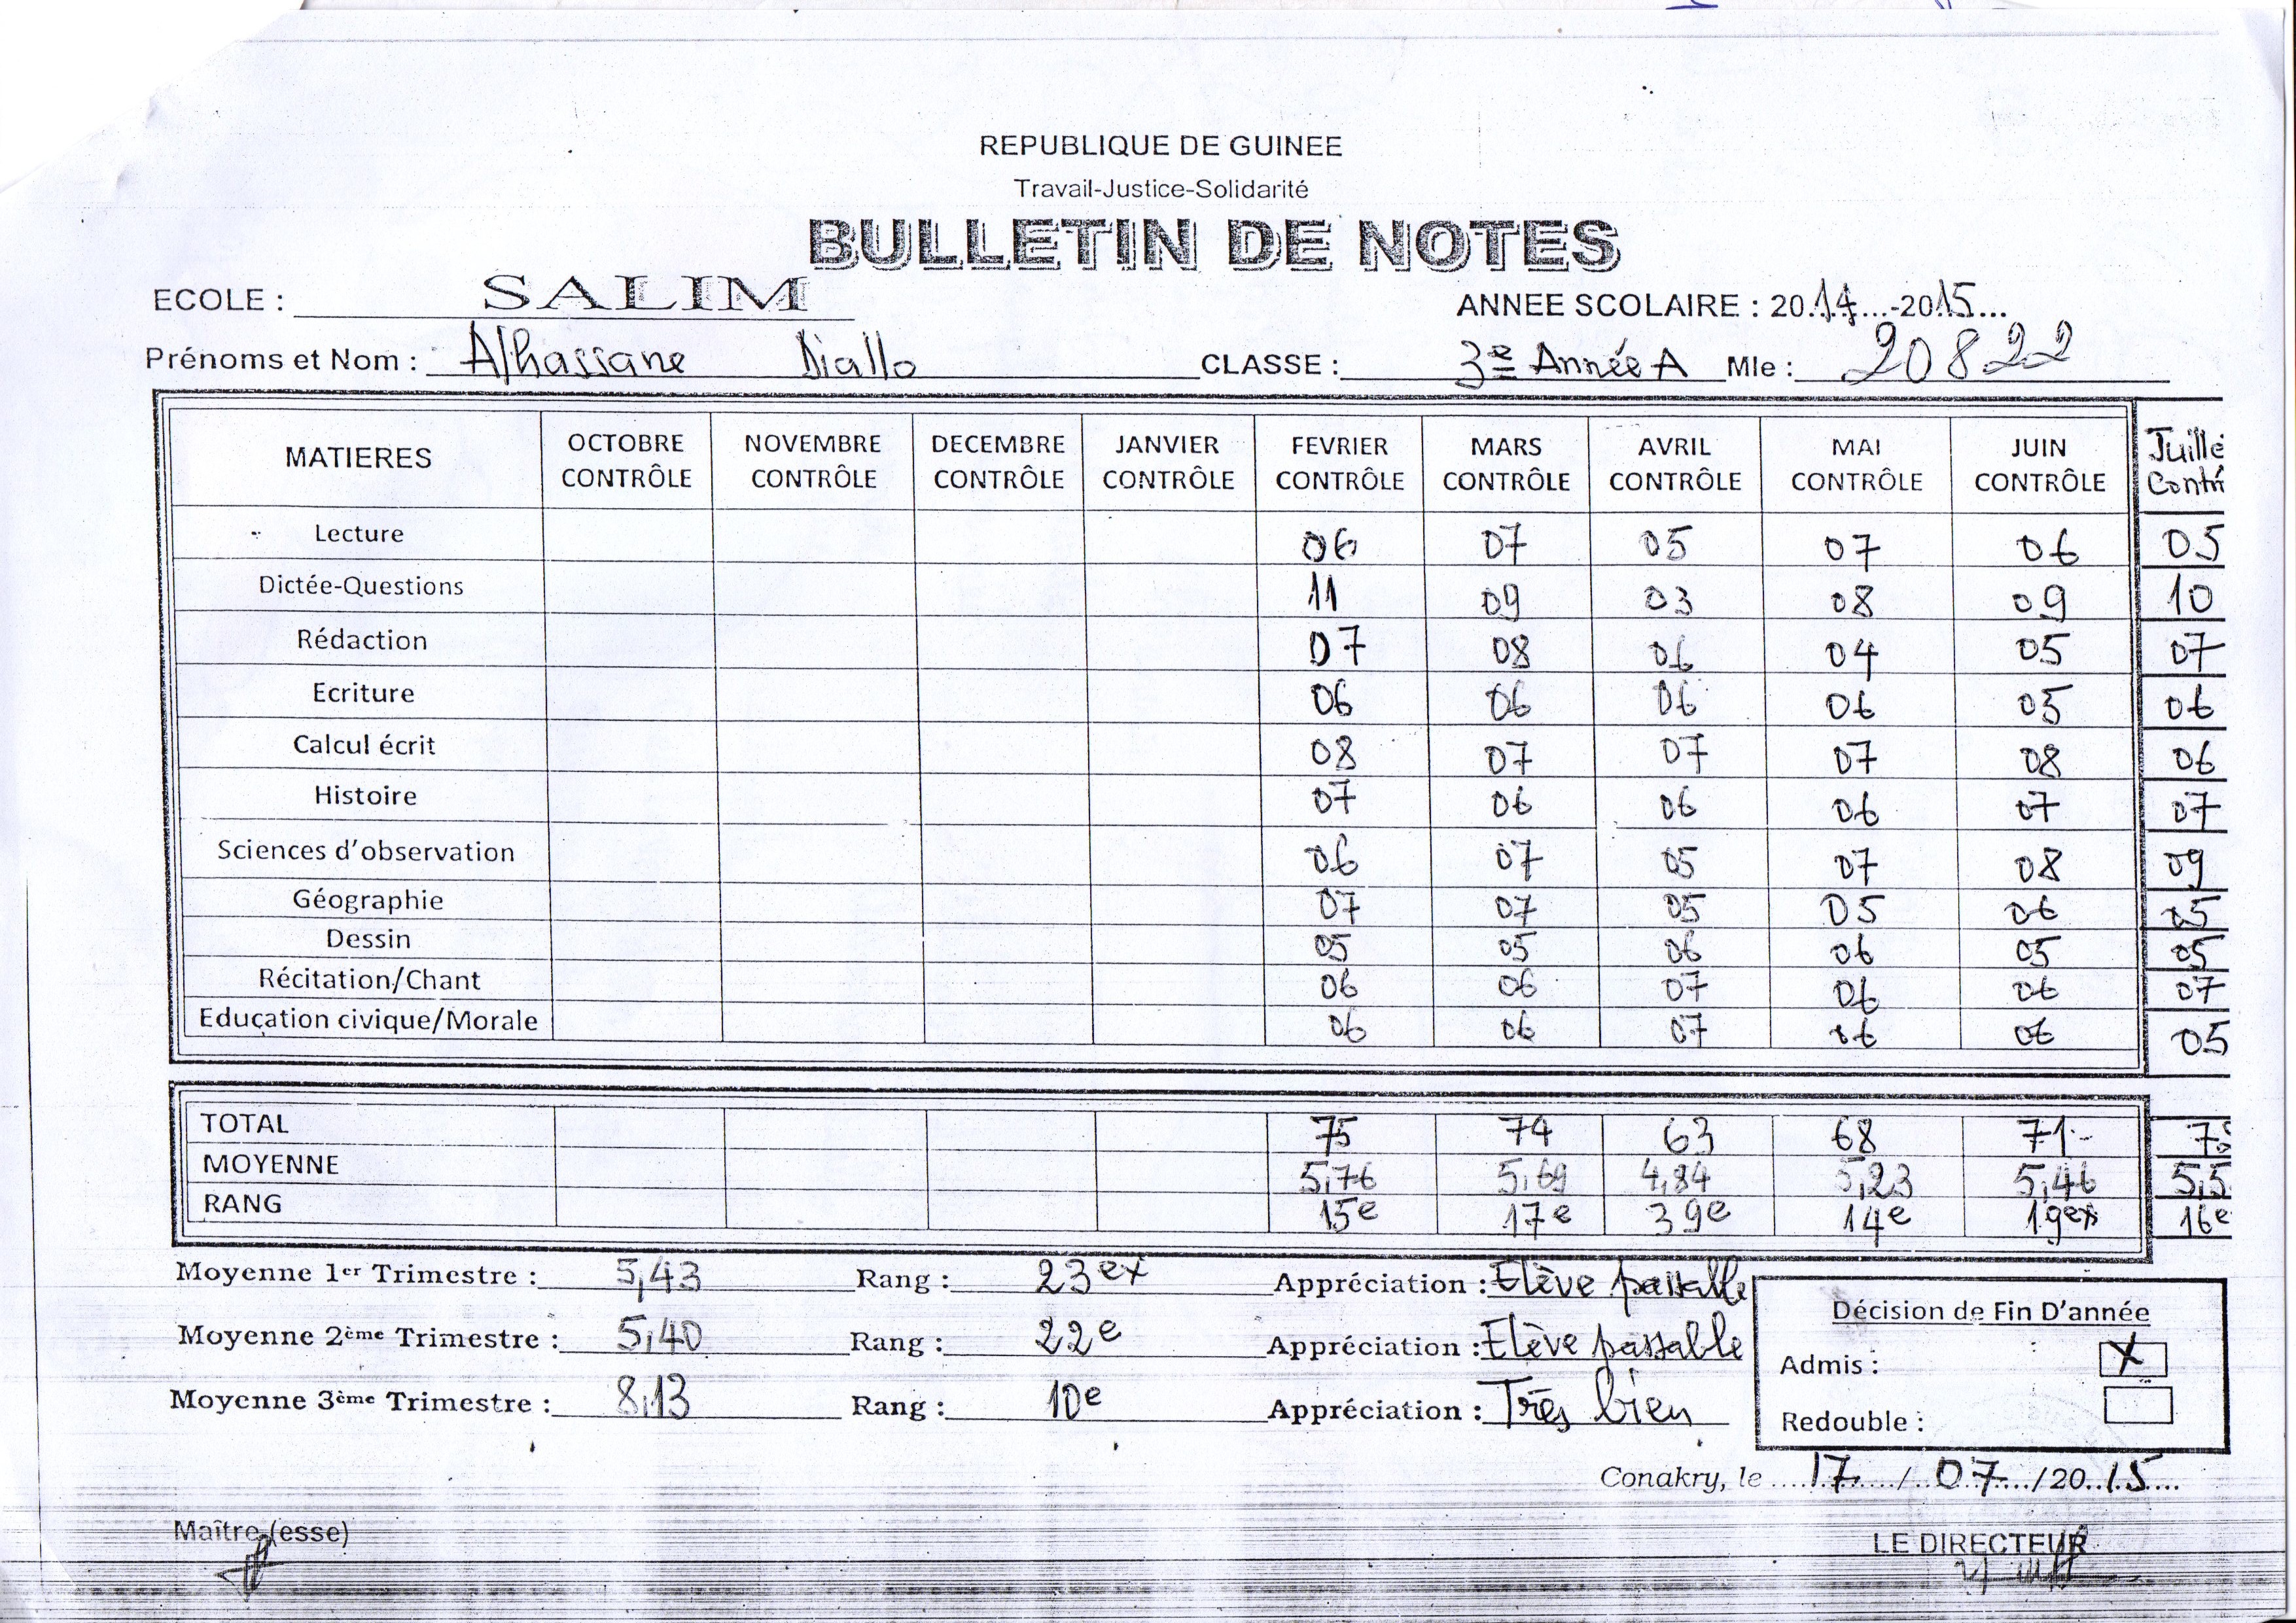 REPUBLIQUE DE GUINEE
Travail-Justice-Solidarité
BULLETIN DE NOTES
ECOLE : SALIM ANNEE SCOLAIRE : 2014-2015
Prénoms et Nom : Alhassane Diallo CLASSE : 3e Année A Mle : 20822
MATIERES OCTOBRE CONTRÔLE NOVEMBRE CONTRÔLE DECEMBRE CONTRÔLE JANVIER CONTRÔLE FEVRIER CONTRÔLE MARS CONTRÔLE AVRIL CONTRÔLE MAI CONTRÔLE JUIN CONTRÔLE Juille Contr
Lecture 06 07 05 07 06 05
Dictée-Questions 11 09 03 08 09 10
Rédaction 07 08 06 04 05 07
Ecriture 06 06 06 06 05 06
Calcul écrit 08 07 07 07 08 06
Histoire 07 06 06 06 07 07
Sciences d'observation 06 07 05 07 08 09
Géographie 07 07 05 05 06 05
Dessin 05 05 06 06 05 05
Récitation/Chant 06 06 07 06 06 07
Education civique/Morale 06 06 07 06 06 05
TOTAL 75 74 63 68 71
MOYENNE 5,76 5,69 4,84 5,23 5,46 5,5
RANG 15e 17e 39e 14e 19ex 16e
Moyenne 1er Trimestre : 5,43 Rang : 23ex Appréciation : Elève passable
Moyenne 2ème Trimestre : 5,40 Rang : 22e Appréciation : Elève passable
Moyenne 3ème Trimestre : 8,13 Rang : 10e Appréciation : Très bien
Décision de Fin D'année
Admis : X
Redouble :
Conakry, le 17/07/2015
Maître (esse) LE DIRECTEUR